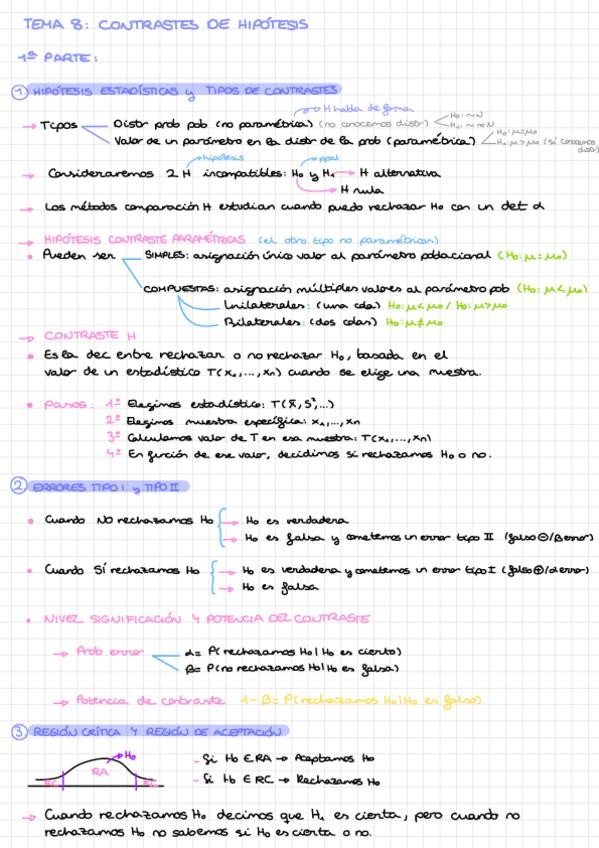 TEMA 8: CONTRASTES DE HIPÓTESIS
1ª PARTE:
① HIPÓTESIS ESTADÍSTICAS y TIPOS DE CONTRASTES
→ H habla de forma
→ Tipos Distr prob pob (no paramétrica) (no conocemos distr) H₀: ~N
H₁: ~ no N
Valor de un parámetro en la distr de la prob (paramétrica) H₀: μ=μ₀
H₁: μ>μ₀ (si conocemos distr)
→ hipótesis → ppal
→ Consideraremos 2 H incompatibles: H₀ y H₁ → H alternativa
→ H nula
→ Los métodos comparación H estudian cuando puedo rechazar H₀ con un det α
→ HIPÓTESIS CONTRASTE PARAMÉTRICAS (el otro tipo no paramétricas)
• Pueden ser SIMPLES: asignación único valor al parámetro poblacional (H₀: μ=μ₀)
COMPUESTAS: asignación múltiples valores al parámetro pob (H₀: μ<μ₀)
Unilaterales: (una cola) H₀: μ<μ₀ / H₀: μ>μ₀
Bilaterales: (dos colas) H₀: μ≠μ₀
→ CONTRASTE H
• Es la dec entre rechazar o no rechazar H₀, basada en el
valor de un estadístico T(x₁,...,xₙ) cuando se elige una muestra.
• Pasos: 1º Elegimos estadístico: T(x̄, S²,...)
2º Elegimos muestra específica: x₁,...,xₙ
3º Calculamos valor de T en esa muestra: T(x₁,...,xₙ)
4º En función de ese valor, decidimos si rechazamos H₀ o no.
② ERRORES TIPO I y TIPO II
• Cuando NO rechazamos H₀ → H₀ es verdadera
→ H₀ es falsa y cometemos un error tipo II (falso ⊖/β error)
• Cuando SÍ rechazamos H₀ → H₀ es verdadera y cometemos un error tipo I (falso ⊕/α error)
→ H₀ es falsa
• NIVEL SIGNIFICACIÓN Y POTENCIA DEL CONTRASTE
→ Prob error α= P(rechazamos H₀|H₀ es cierto)
β= P(no rechazamos H₀|H₀ es falsa)
→ Potencia de contraste 1-β= P(rechazamos H₀|H₀ es falsa)
③ REGIÓN CRÍTICA Y REGIÓN DE ACEPTACIÓN
→ H₀
RC RA RC
- Si H₀ ∈ RA → Aceptamos H₀
- Si H₀ ∈ RC → Rechazamos H₀
→ Cuando rechazamos H₀ decimos que H₁ es cierta, pero cuando no
rechazamos H₀ no sabemos si H₀ es cierta o no.